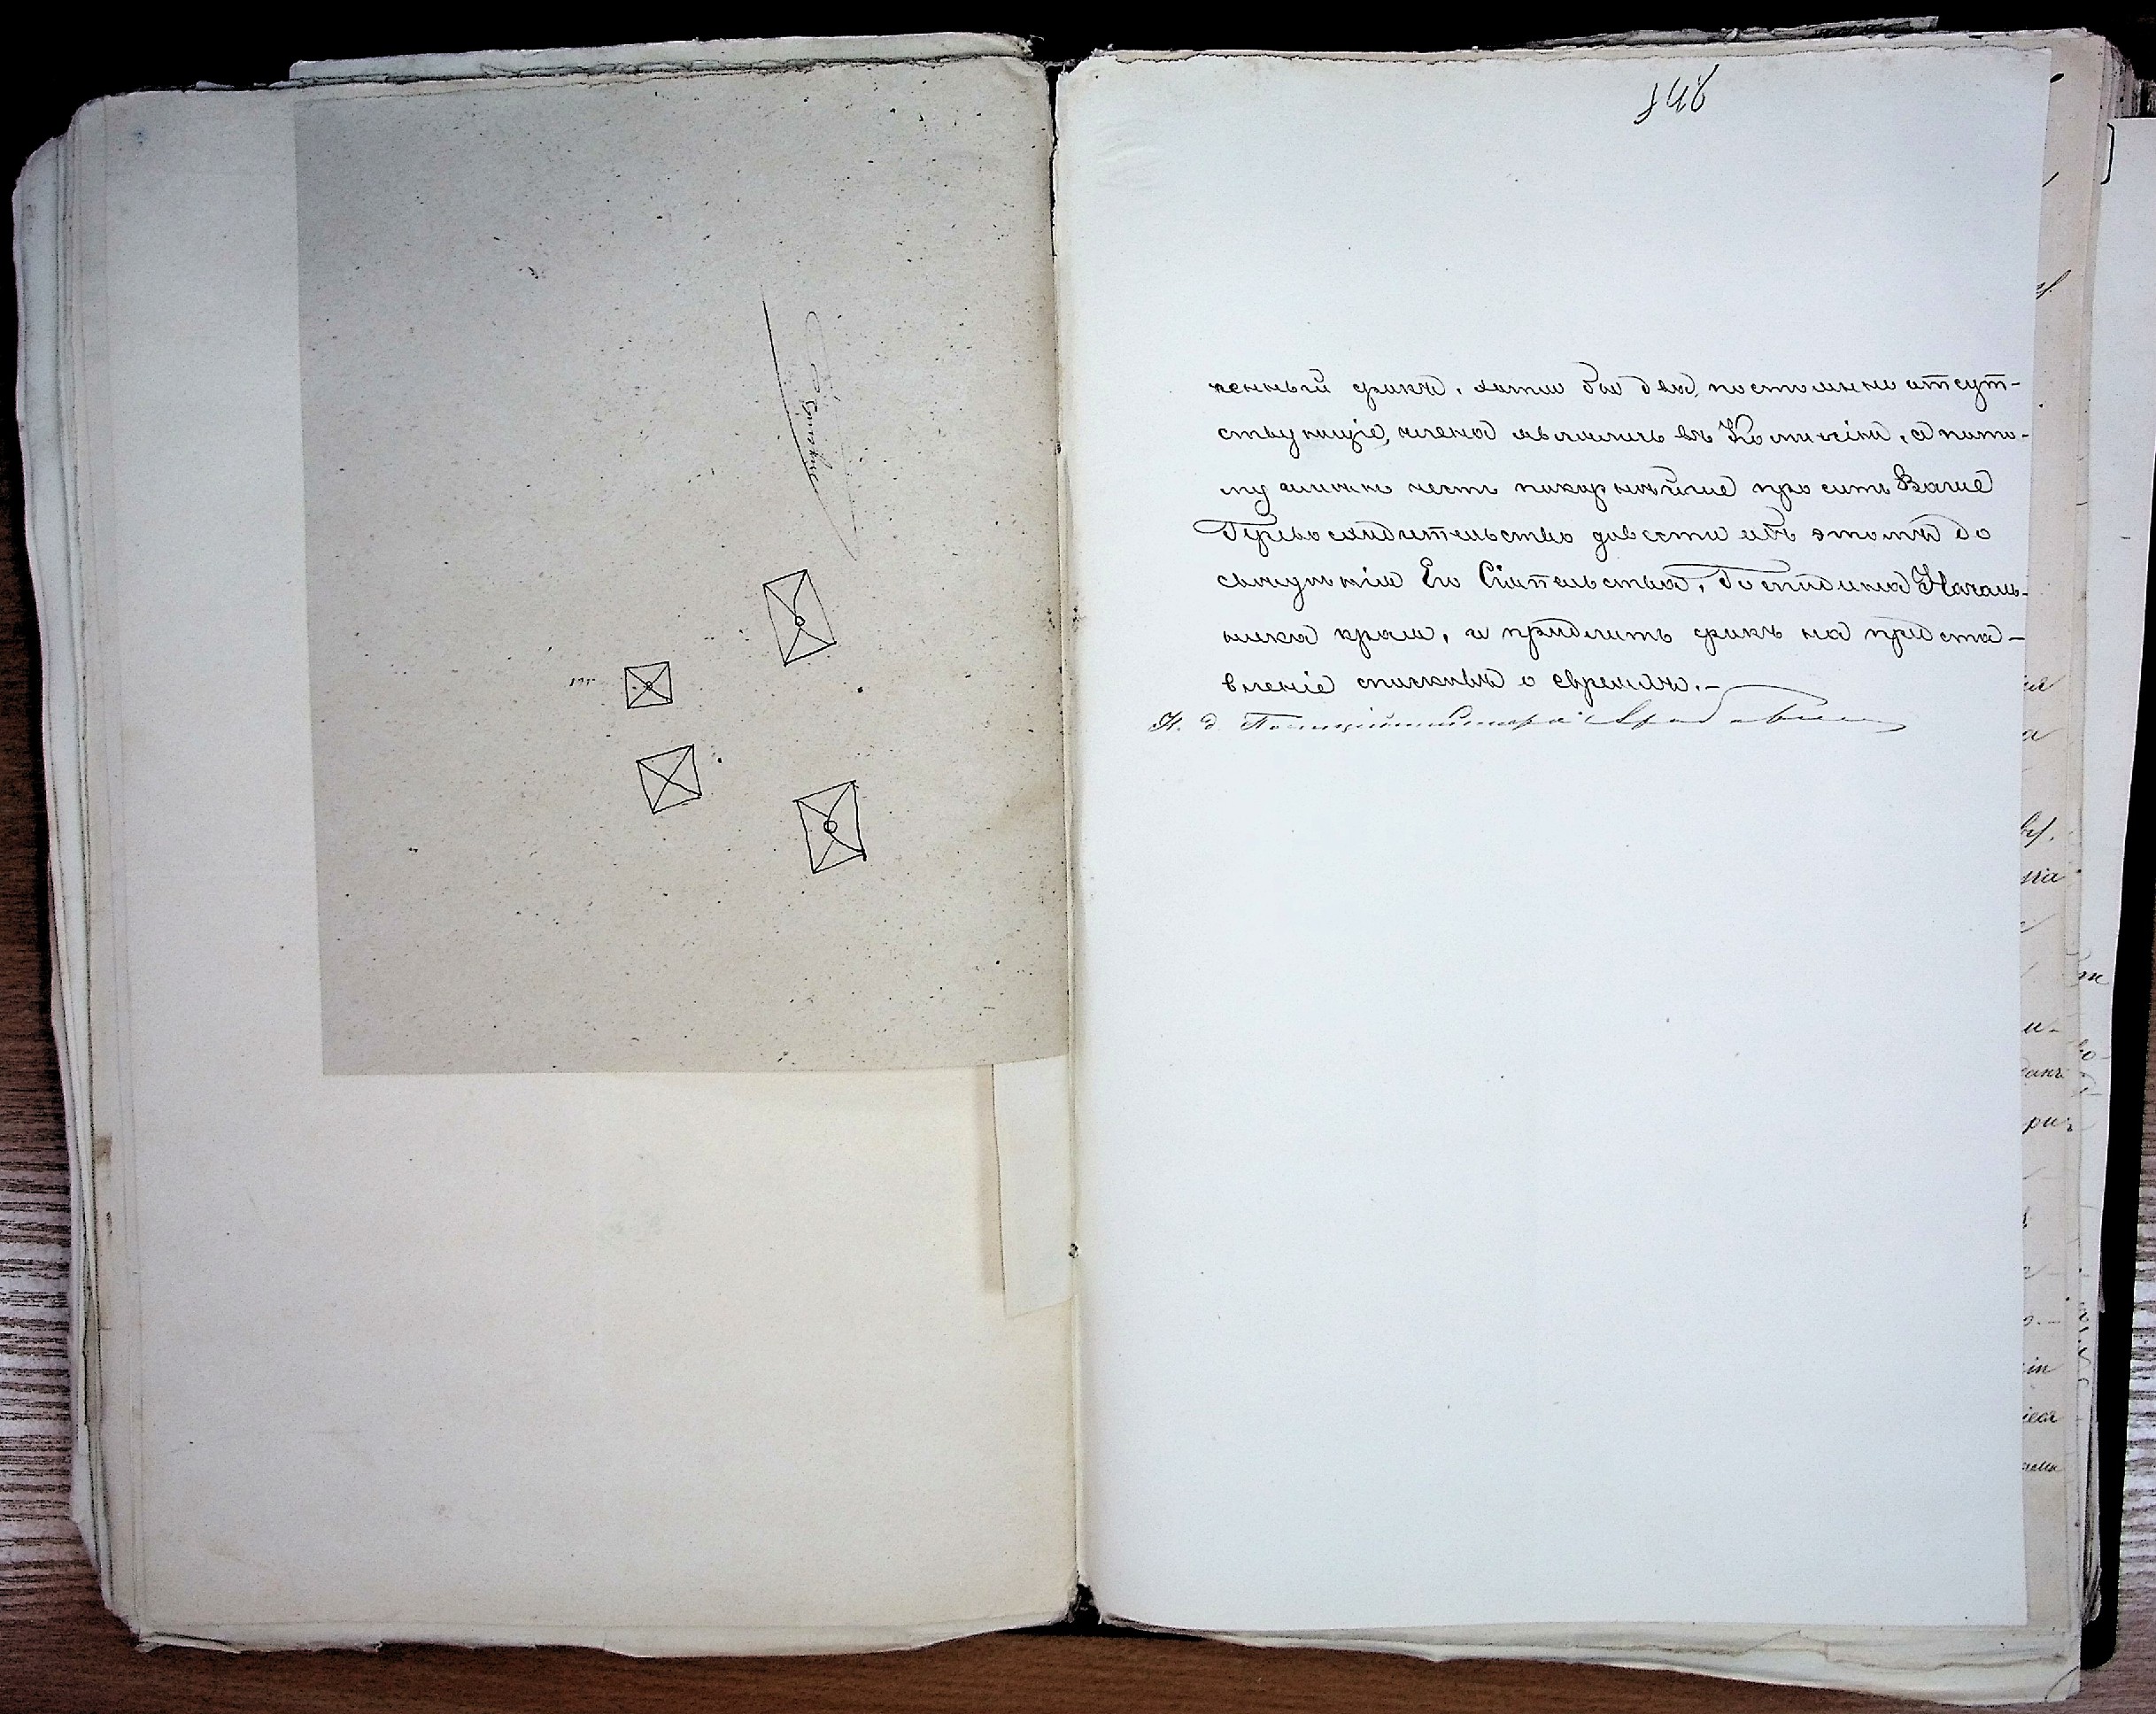 148
ченный срокъ, хотя бы два постоянно отсут-
ствующіе, члена явились въ Комисію, а пото-
му имѣю честь покорнѣйше просить Ваше
Превосходительство довести объ этомъ до
свѣдѣнія Его Сіятельства, Господина Началь-
ника края, и продлить срокъ на предста-
вленіе списковъ о евреяхъ.-
И. д. Полиціймейстера